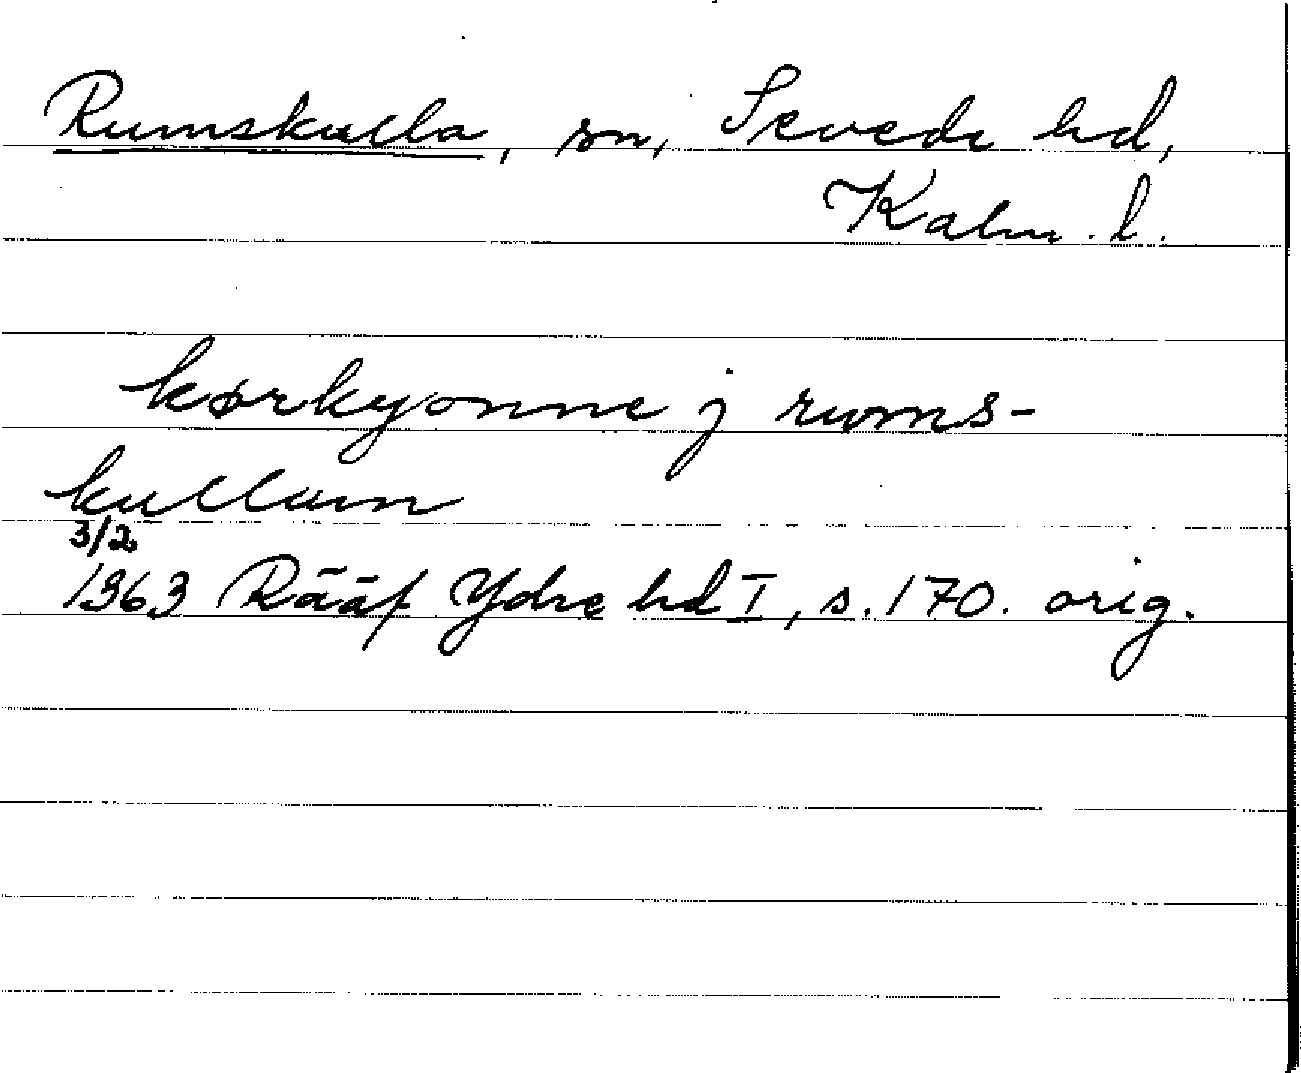 Rumskulla, sn, Sevede hd,
Kalm. l.
kørkyonne j rwms-
kullum
3/2
1363 Rääf Ydre hd I, s. 170. orig.